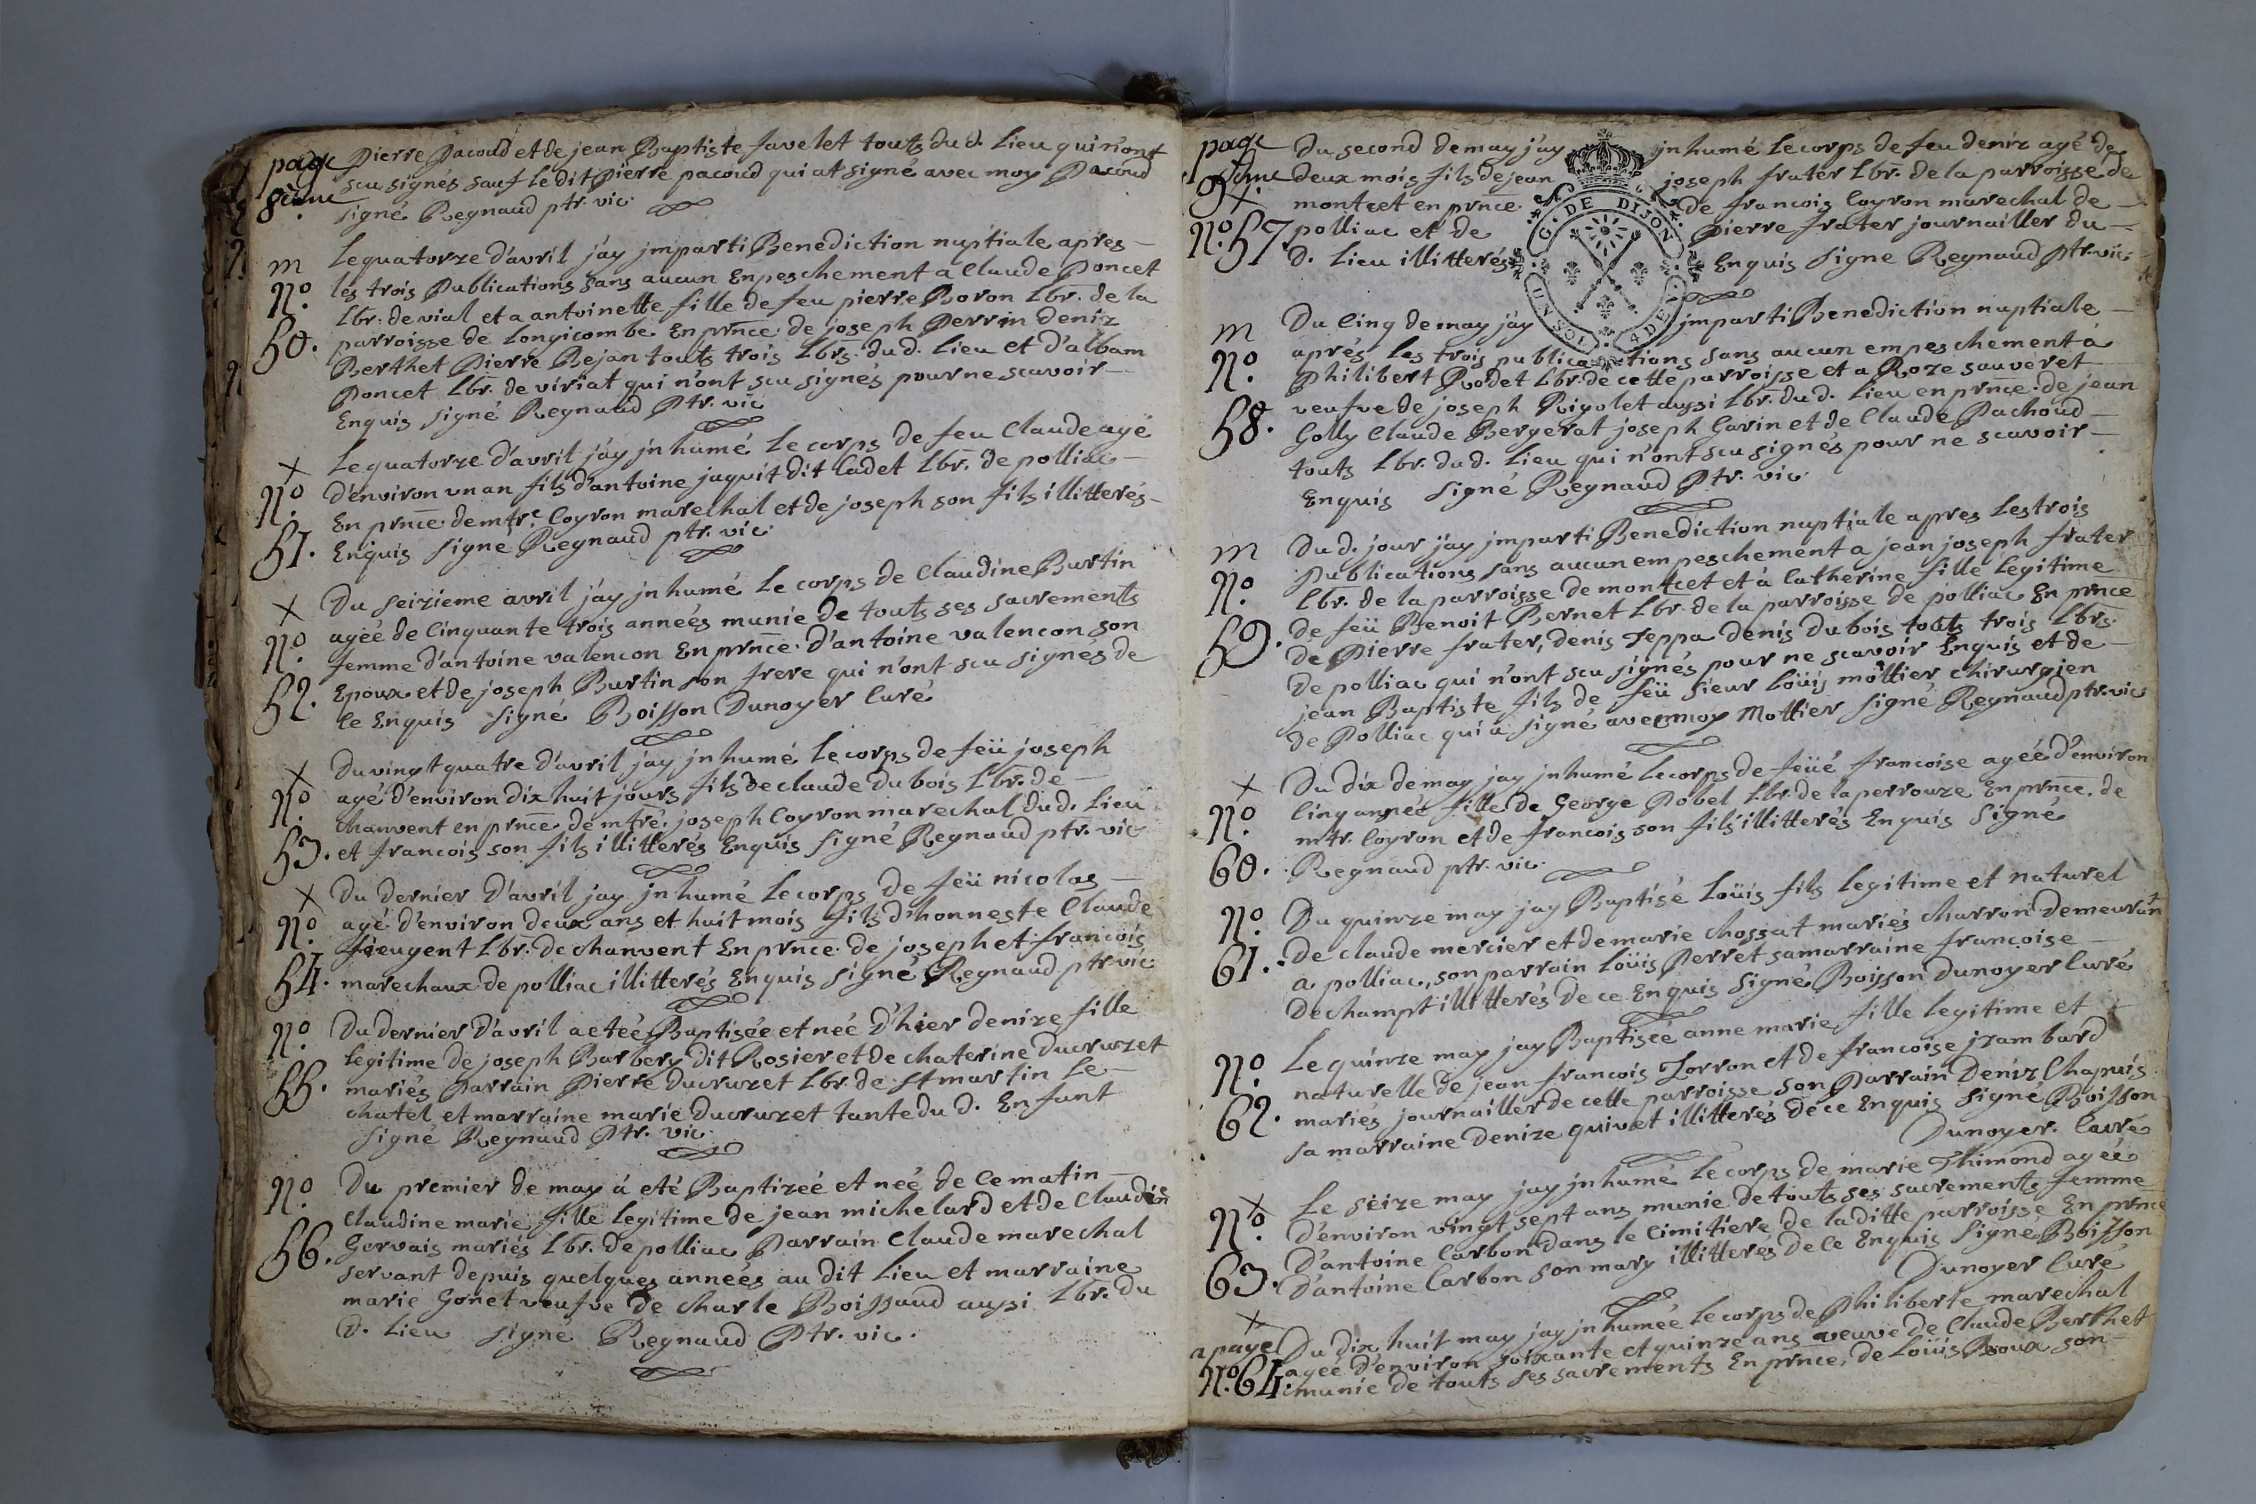 page
8eme
pierre pacoud et de jean Baptiste favelet touts du d. Lieu qui n'ont
scu signés sauf le dit pierre pacoud qui at signé avec moy Pacoud
signé Regnaud ptr. vic.
m
N.o
50.
Le quatorze d'avril j'ay jmparti Benediction nuptiale apres
les trois Publications sans aucun Enpeschement a Claude Poncet
Lbr. de vial et a antoinette fille de feu pierre Boron Lbr. de la
parroisse de Longicombe En prnce. de joseph Perrin deniz
Berthet Pierre Bejan touts trois Lbrs. du d. Lieu et d'alban
Poncet Lbr. de viriat qui n'ont scu signés pour ne scavoir
Enquis signé Regnaud Ptr. vic
x
N.o
51.
Le quatorze d'avril j'ay jnhumé Le corps de feu Claude agé
d'environ un an fils d'antoine jaquit dit Cadet Lbr. de polliac
En prnce. de mtre. Coyron marechal et de joseph son fils illitterés
Enquis signe Regnaud ptr. vic.
x
N.o
52.
Du seizieme avril j'ay jnhumé Le corps de Claudine Burtin
ageé de Cinquante trois anneés munie de touts ses sacrements
femme d'antoine valencon En prnce. d'antoine valencon son
Epoux et de joseph Burtin son frere qui n'ont scu signes de
Ce Enquis signé Boisson Dunoyer Curé
x
N.o
53.
Du vingt quatre d'avril jay jnhumé Le corps de feü joseph
agé d'environ dix huit jours fils de claude du bois Lbr. de
chanvent en prnce de mtré. joseph Coyron marechal du d. Lieu
et francois son fils illitterés Enquis signé Regnaud ptr. vic
x
N.o
54.
Du dernier d'avril jay jnhumé Le corps de feü nicolas
agé d'environ deux ans et huit mois fils d'honneste Claude
feugent Lbr. de chanvent En prnce. de joseph et francois
marechaux de polliac illitterés Enquis signé Regnaud ptr. vic
N.o
55.
Du dernier d'avril a eteé Baptisée et neé d'hier denize fille
Legitime de joseph Barbery dit Rosier et de chaterine ducruzet
mariés Parrain Pierre ducruzet Lbr. de st martin Le
chatel et marraine marie ducruzet tante du d. Enfant
signe Regnaud Ptr. vic.
N.o
56.
Du premier de may a eté Baptizeé et neé de Ce matin
Claudine marie fille Legitime de jean michelard et de Claudine
Gervais mariés Lbr. de polliac Parrain Claude marechal
servant depuis quelques anneés au dit Lieu et marraine
marie Gonet veufve de charle Boissaud aussi Lbr. du
d. Lieu signé Regnaud Ptr. vic.
page
9eme
x
N.o 57.
Du second de may j'ay jnhumé Le corps de feu deniz agé de
deux mois fils de jean joseph frater Lbr. de la parroisse de
montcet en prnce. de francois Coyron marechal de
polliac et de pierre frater journailler du
d. Lieu illitterés Enquis signe Regnaud Ptr. vic
G. DE DIJON
UN SOL 4 DEN
m
N.o
58.
Du Cinq de may j'ay jmparti Benediction nuptiale
aprés Les trois publications sans aucun empeschement a
Philibert Rodet Lbr. de cette parroisse et a Roze sauveret
veufve de joseph Rigolet aussi Lbr. du d. Lieu en prnce. de jean
Golly Claude Bergerat joseph Garin et de Claude Pachoud
touts Lbr. du d. Lieu qui n'ont scu signés pour ne scavoir
Enquis signé Regnaud Ptr. vic.
m
N.o
59.
Du d. jour j'ay jmparti Benediction nuptiale apres Les trois
Publications sans aucun empeschement a jean joseph frater
Lbr. de la parroisse de montcet et à Catherine fille Legitime
de feü Benoit Bernet Lbr. de la parroisse de polliac En prnce
de Pierre frater, denis Teppa denis du bois touts trois Lbrs.
de polliac qui n'ont scu signés pour ne scavoir Enquis et de
jean Baptiste fils de feü sieur Loüis mottier chirurgien
de Polliac qui a signé avec moy Mottier signé Regnaud ptr. vic
x
N.o
60.
Du dix de may jay jnhumé Le corps de feüé francoise ageé d'environ
Cinq année fille de George Pobel Lbr. de la perrouze En prnce. de
mtr. Coyron et de francois son fils illitterés Enquis signé
Regnaud ptr. vic.
N.o
61.
Du quinze may jay Baptisé Loüis fils legitime et naturel
De claude mercier et de marie chossat mariés charron demeurant
a polliac, son parrain Loüis Perret sa marraine francoise
Dechampt illitterés de ce Enquis signé Boisson dunoyer Curé
N.o
62.
Le quinze may jay Baptiseé anne marie fille legitime et
naturelle de jean francois Torron et de francoise jzambard
mariés journailler de cette parroisse son Parrain Deniz Chapuis
sa marraine denize quivet illitterés de ce Enquis signé Boisson
Dunoyer. Curé
x
N.o
63.
Le seize may jay jnhumé Le corps de marie Thimond ageé
D'environ vingt sept ans munie de touts ses sacrements femme
D'antoine Carbon dans le Cimitiere de laditte parroisse En prnce
D'antoine Carbon son mary illitterés de Ce Enquis signé Boisson
Dunoyer Curé
x
a paye
N.o 64.
Du dix huit may jay jnhumeé Le corps de Philiberte marechal
ageé d'environ soixante et quinze ans veuve de Claude Berthet
munie de touts ses sacrements En prnce. de Loüis Roux son